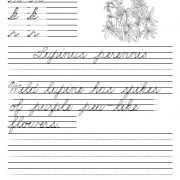 k k
r r
Lupinus perennis
Wild lupine has spikes
of purple pea-like
flowers.